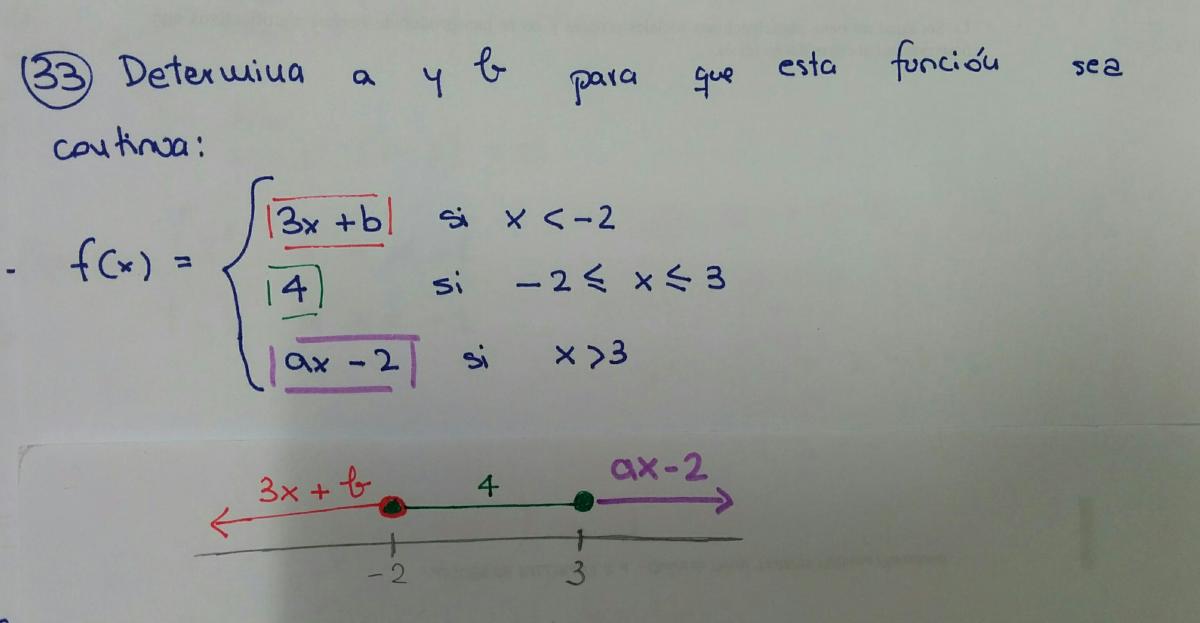 33 Determina a y b para que esta función sea
continua:
f(x) =
3x + b si x < -2
4 si -2 ≤ x ≤ 3
ax - 2 si x > 3
3x + b 4 ax - 2
-2 3